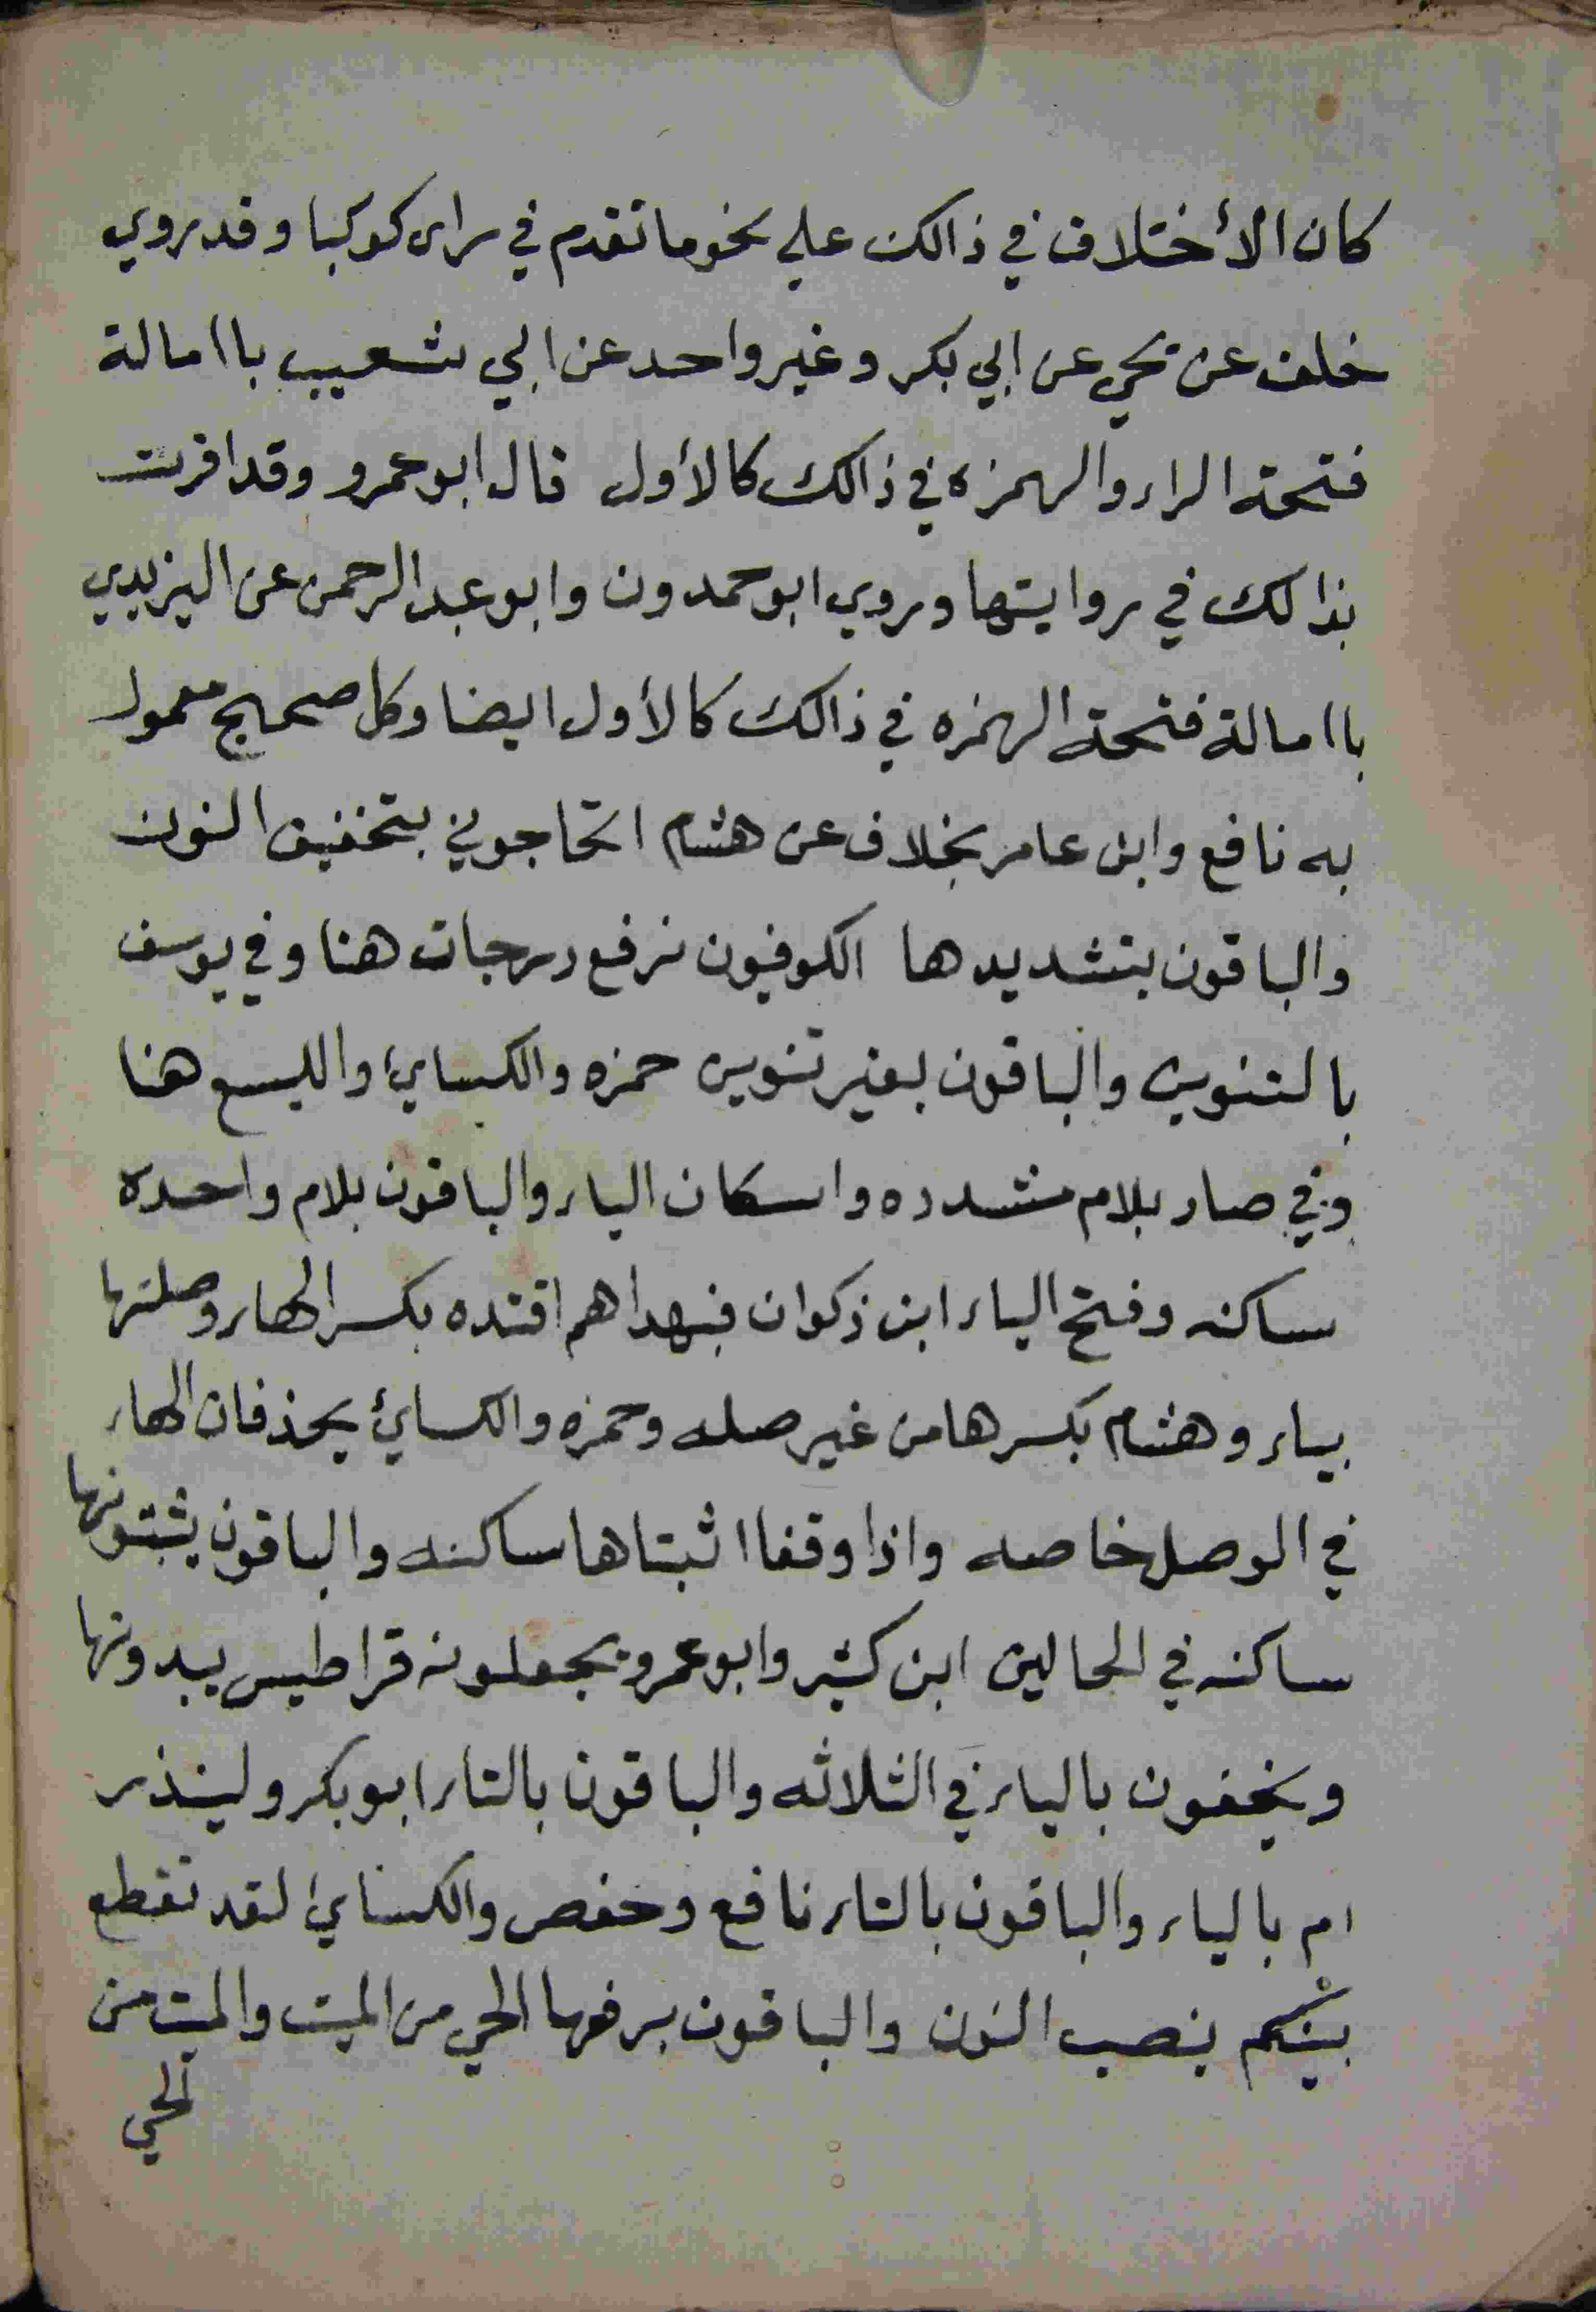 كان الأختلاف في ذالك علي نحو ما تقدم في راى كوكبا وقد روي
خلف عن يحي عن ابي بكر وغير واحد عن ابي شعيب باامالة
فتحة الراء والهمزه في ذالك كالأول قال ابو عمرو وقد اقرت
بذالك في روايتها وروي ابو حمدون وابو عبد الرحمن عن اليزيدي
باامالة فتحة الهمزه في ذالك كالأول ايضا وكل صحيح معمول
به نافع وابن عامر بخلاف عن هشام اتحاجوني بتخفيف النون
والباقون بتشديدها الكوفيون نرفع درجات هنا وفي يوسف
بالتنوين والباقون بغير تنوين حمزه والكساي واليسع هنا
وفي صاد بلام مشدده واسكان الياء والباقون بلام واحده
ساكنه وفتح الياء ابن ذكوان فبهداهم اقتده بكسر الهاء وصلتها
بياء وهشام بكسرها من غير صله وحمزه والكسائ يحذفان الهاء
في الوصل خاصه واذا وقفا اثبتاها ساكنه والباقون يثبتونها
ساكنه في الحالين ابن كثير وابو عمرو يجعلونه قراطيس يبدونها
ويخفون بالياء في الثلاثه والباقون بالتاء ابو بكر ولينذر
ام بالياء والباقون بالتاء نافع وحفص والكساي لقد تقطع
بينكم بنصب النون والباقون برفعها الحي من الميت والميت من
الحي